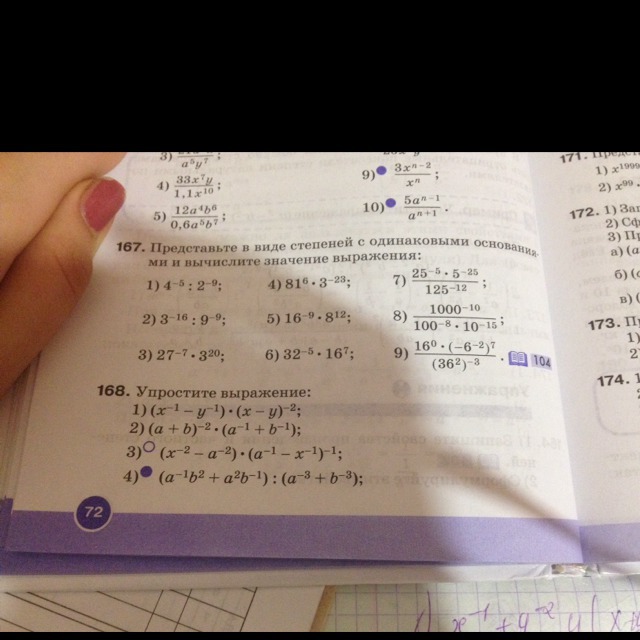 3) a⁵y⁷ ;
4) 33x⁷y / 1,1x¹⁰ ;
5) 12a⁴b⁶ / 0,6a⁵b⁷ ;
9) 3xⁿ⁻² / xⁿ ;
10) 5aⁿ⁻¹ / aⁿ⁺¹ .
167. Представьте в виде степеней с одинаковыми основания-
ми и вычислите значение выражения:
1) 4⁻⁵ : 2⁻⁹; 4) 81⁶ · 3⁻²³; 7) 25⁻⁵ · 5⁻²⁵ / 125⁻¹² ;
2) 3⁻¹⁶ : 9⁻⁹; 5) 16⁻⁹ · 8¹²; 8) 1000⁻¹⁰ / 100⁻⁸ · 10⁻¹⁵ ;
3) 27⁻⁷ · 3²⁰; 6) 32⁻⁵ · 16⁷; 9) 16⁰ · (−6⁻²)⁷ / (36²)⁻³ . 104
168. Упростите выражение:
1) (x⁻¹ − y⁻¹) · (x − y)⁻²;
2) (a + b)⁻² · (a⁻¹ + b⁻¹);
3) (x⁻² − a⁻²) · (a⁻¹ − x⁻¹)⁻¹;
4) (a⁻¹b² + a²b⁻¹) : (a⁻³ + b⁻³);
72
171.
1) x¹⁹⁹⁹
2) x⁹⁹
172. 1)
2)
3)
а) (a
б) (
в) (
173.
1)
2
174.